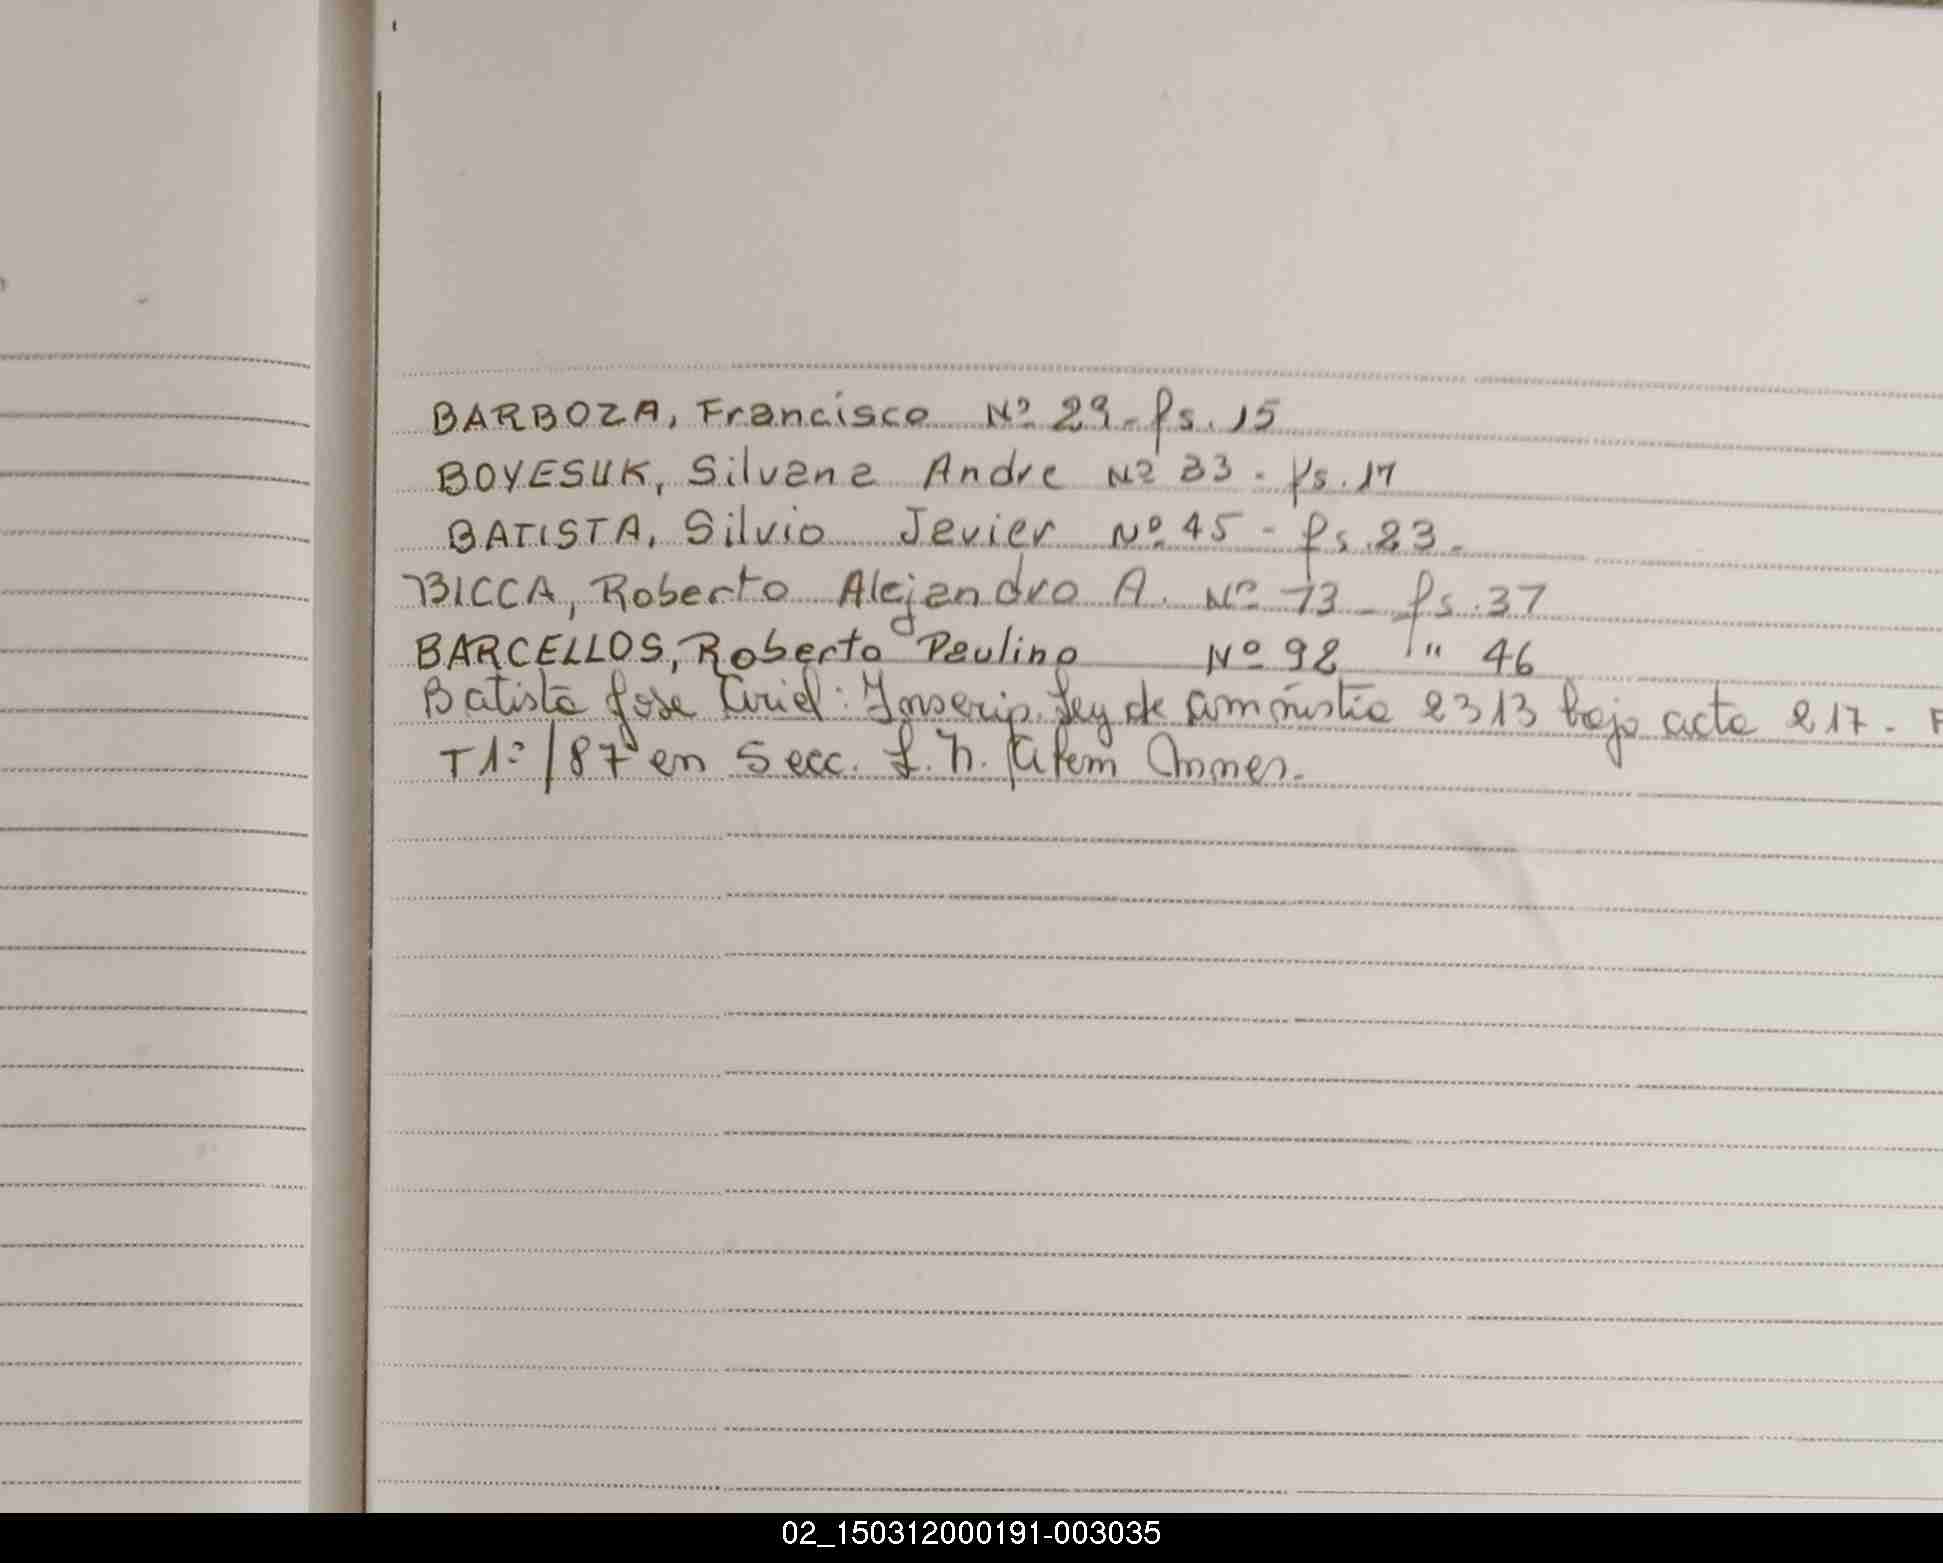 BARBOZA, Francisco Nº 29 - fs. 15
BOYESUK, Silvana Andre Nº 33 - fs. 17
BATISTA, Silvio Javier Nº 45 - fs. 23 -
BICCA, Roberto Alejandro A. Nº 73 - fs. 37
BARCELLOS, Roberto Paulino Nº 98 " 46
Batista Jose Ariel: Inscrip. Ley de amnistia 2313 bajo acta 217 - F
T1º/87 en Secc. L. N. Alem
02_150312000191-003035